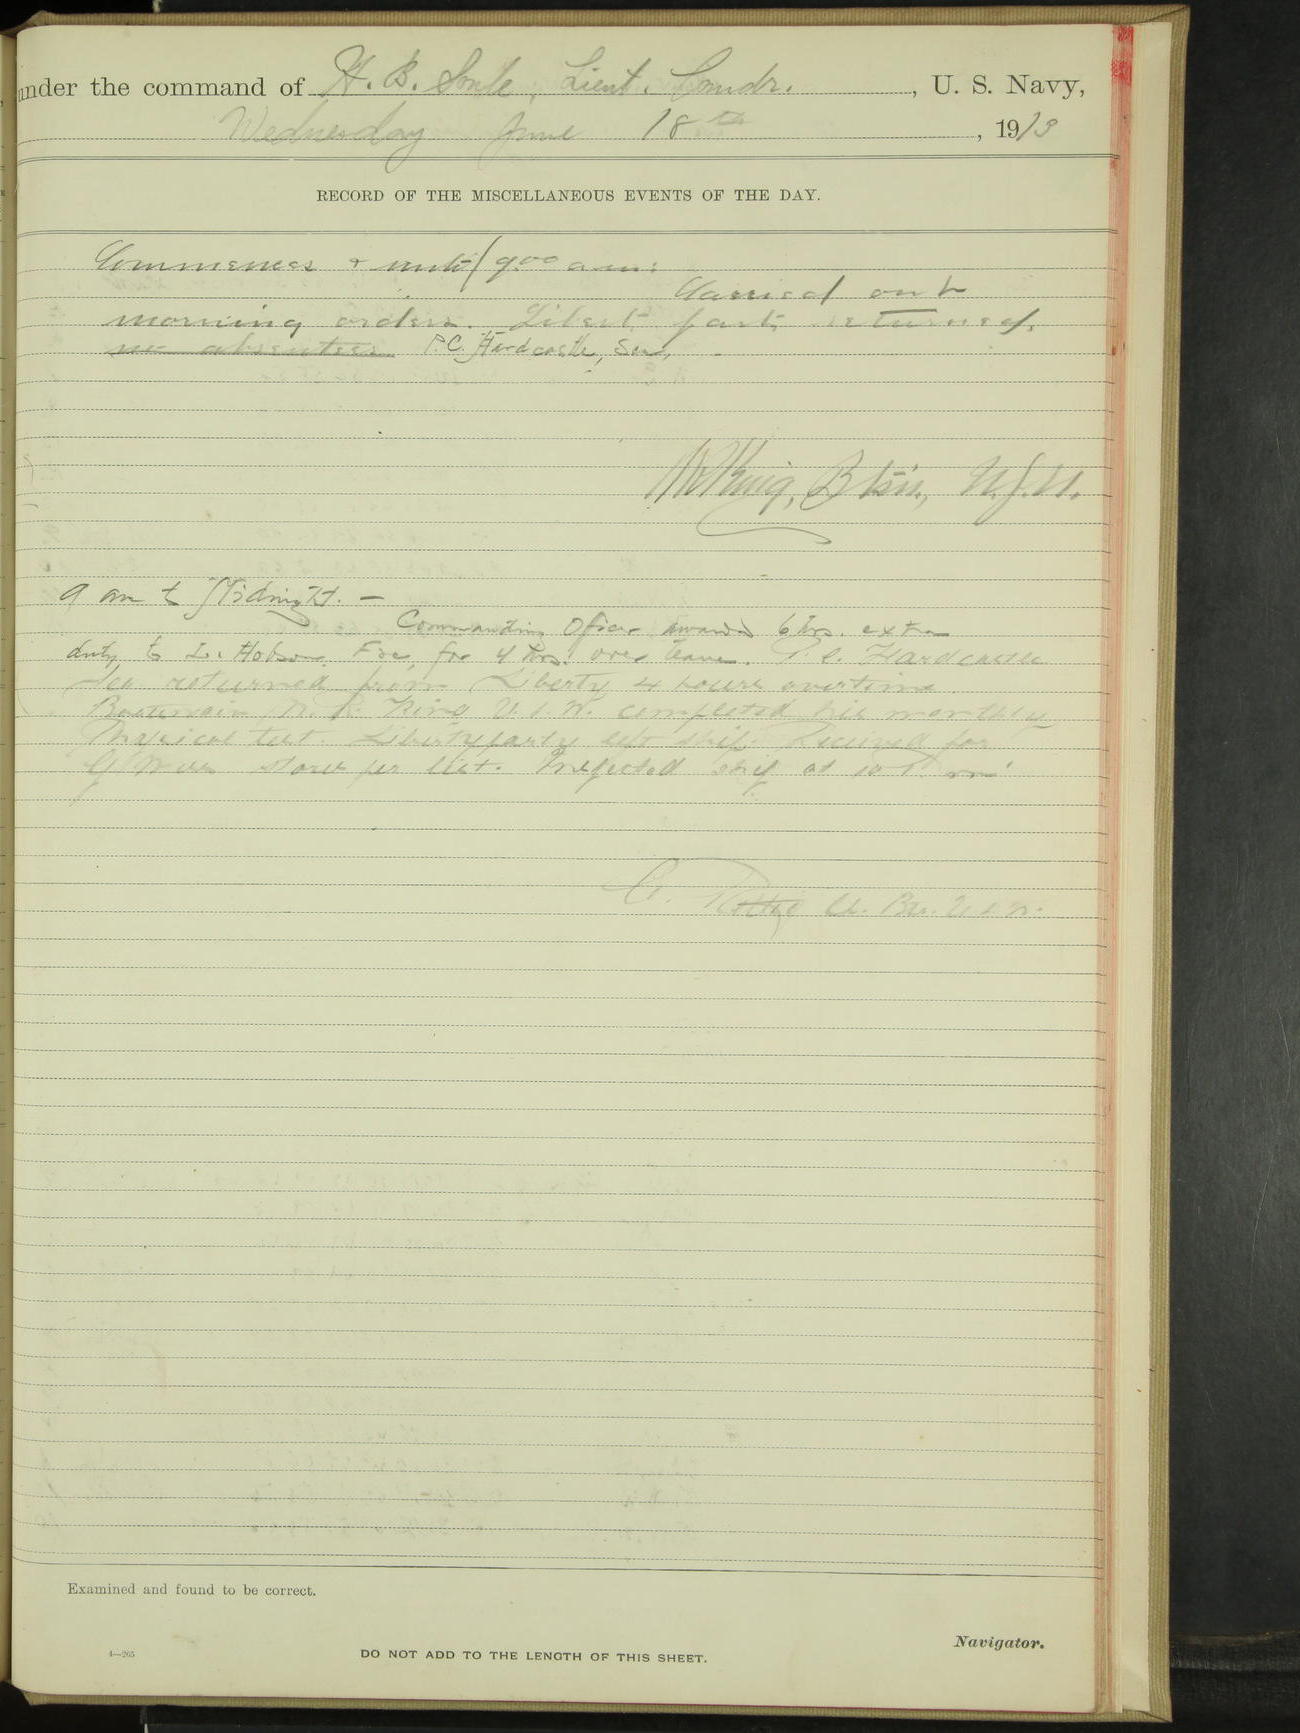 under the command of H. B. Soule, Lieut. Comdr., U. S. Navy,
Wednesday June 18th, 1913
RECORD OF THE MISCELLANEOUS EVENTS OF THE DAY.
Commences & until 9.00 a.m:
Carried out
morning orders. Liberty party returned,
no absentees P.C. Hardcastle, Sea,
King, Btsn., U.S.N.
9 am to Midnight. —
Commanding Officer awarded 6 hrs. extra
duty to L. Hobson, for 4 hrs. over leave. P. C. Hardcastle
Sea. returned from Liberty 4 hours overtime.
Boatswain King U.S.N. completed his monthly
Physical test. Liberty party left ship. Received for
stores per list. Inspected ship at 10 P. m.
U.S.N.
Examined and found to be correct.
Navigator.
4—265
DO NOT ADD TO THE LENGTH OF THIS SHEET.